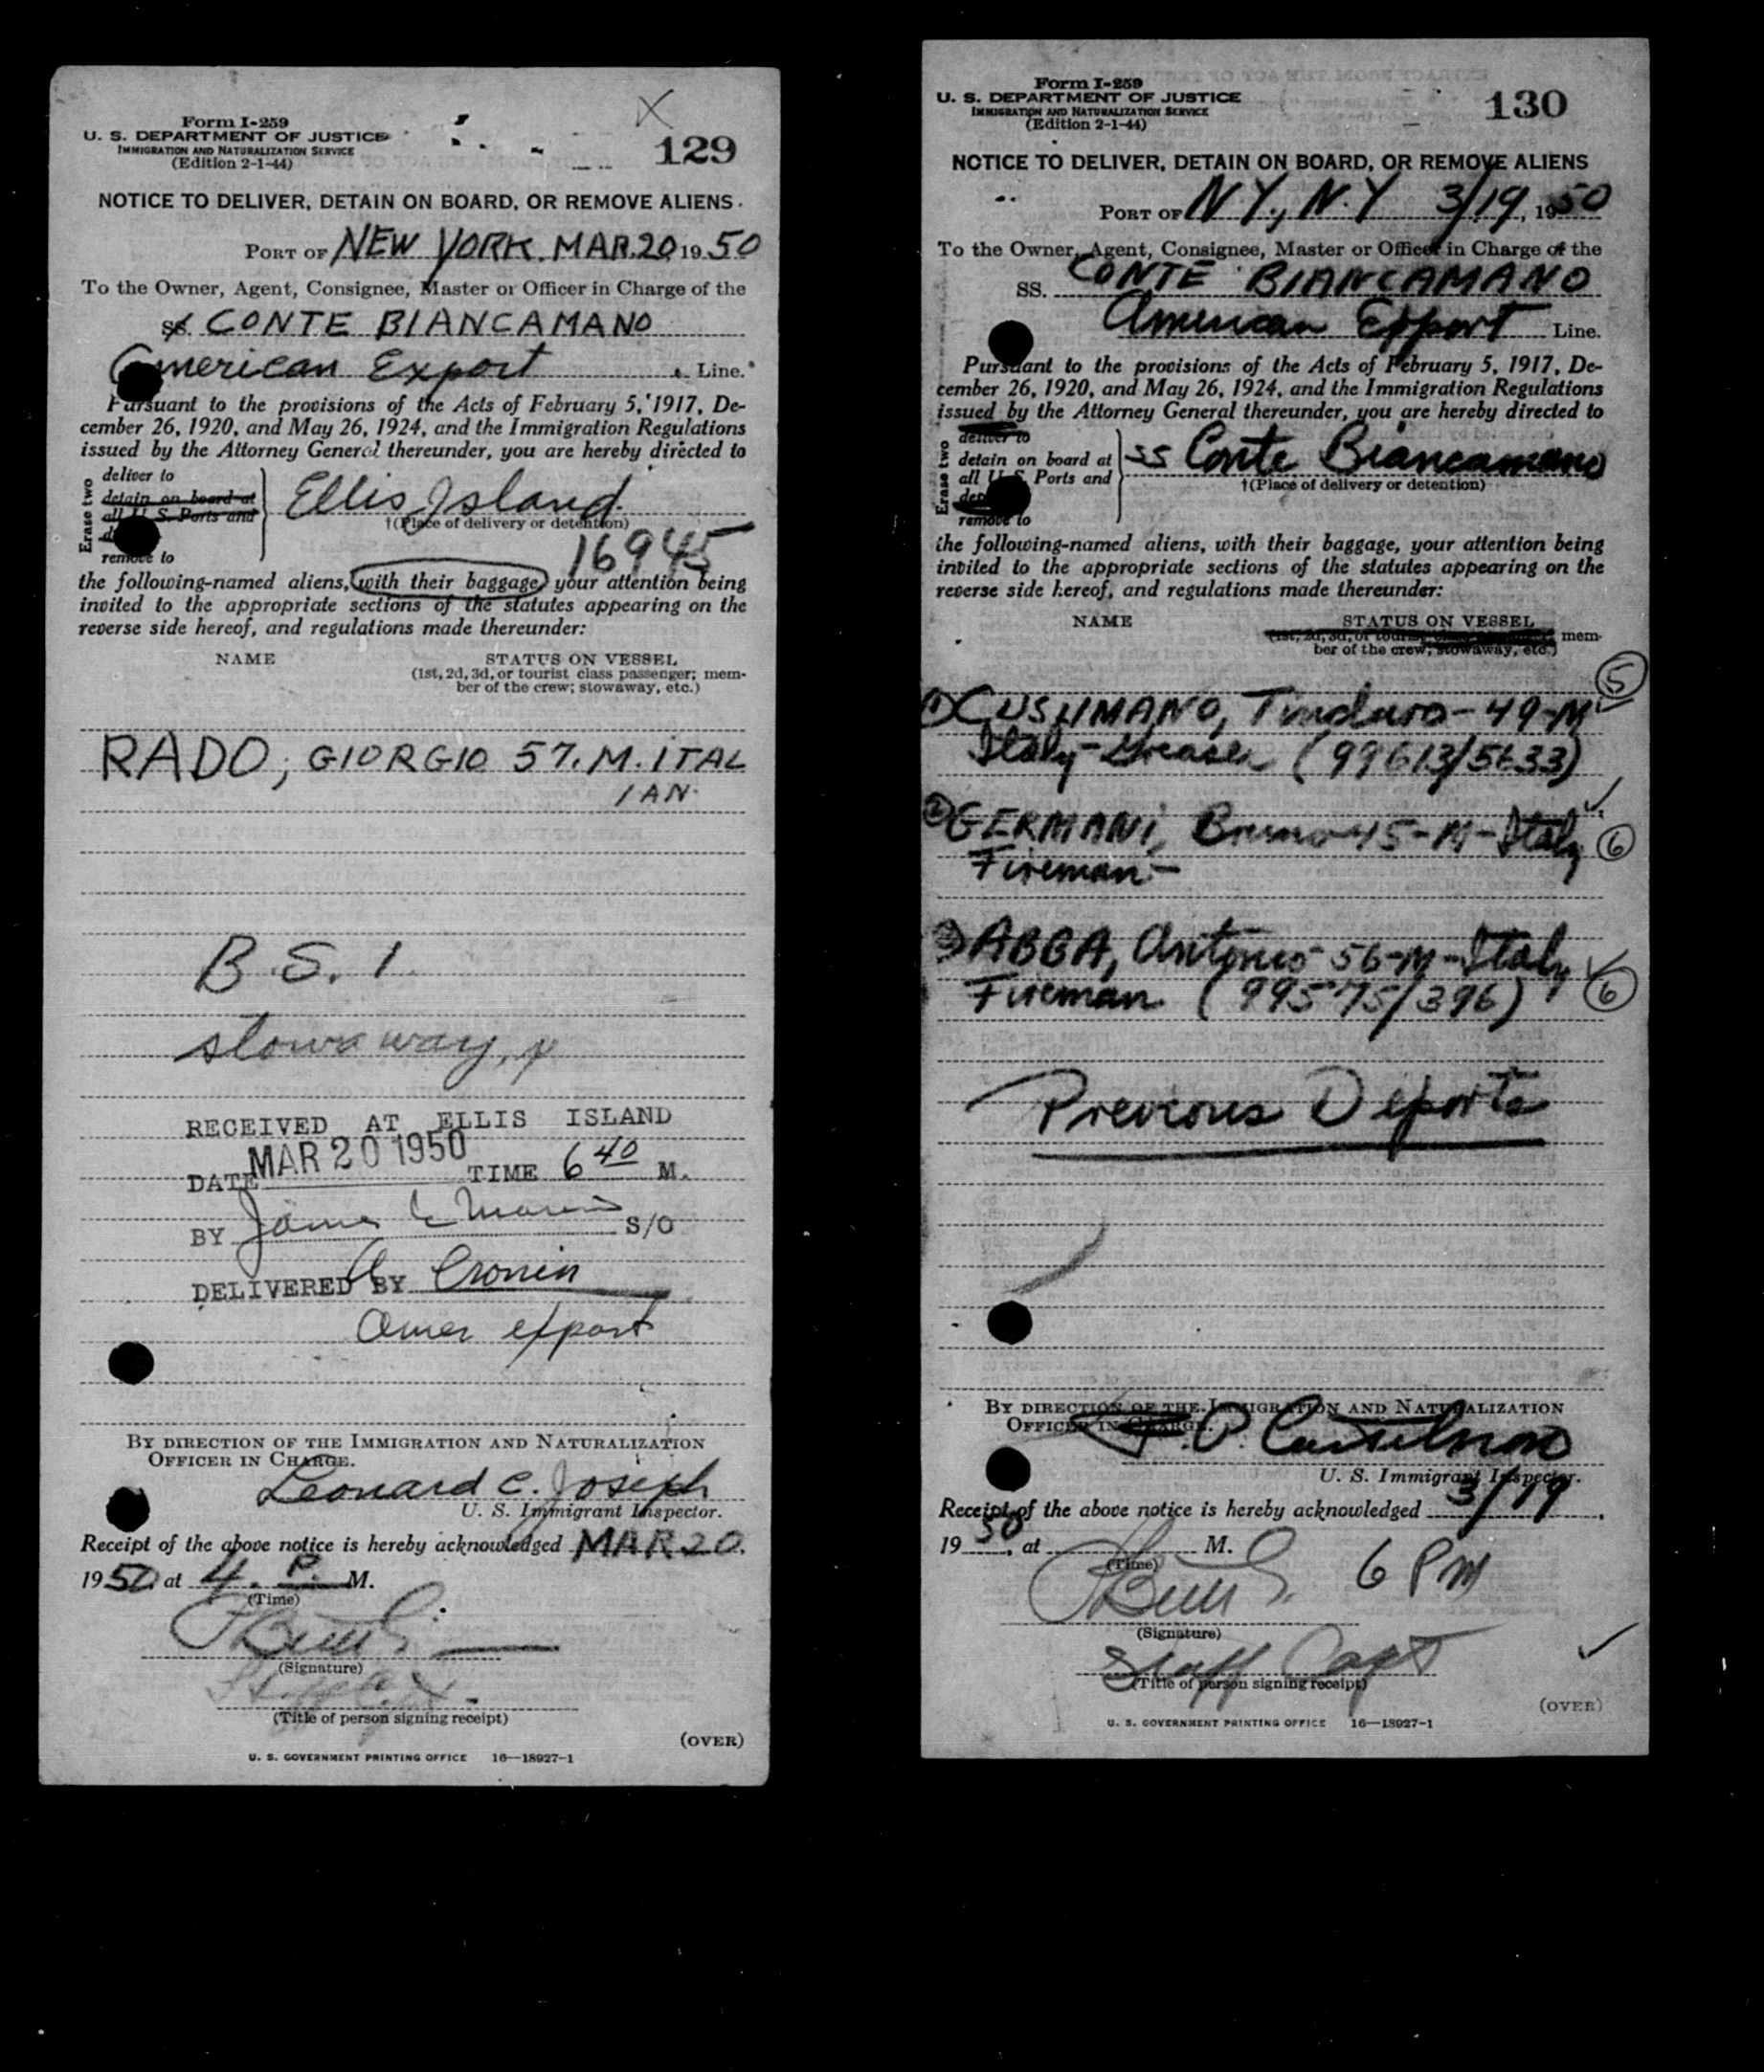 Form I-259
U. S. DEPARTMENT OF JUSTICE
IMMIGRATION AND NATURALIZATION SERVICE
(Edition 2-1-44)
X
129
NOTICE TO DELIVER, DETAIN ON BOARD, OR REMOVE ALIENS
PORT OF NEW YORK. MAR. 20 1950
To the Owner, Agent, Consignee, Master or Officer in Charge of the
SS. CONTE BIANCAMANO
American Export Line.
Pursuant to the provisions of the Acts of February 5, 1917, De-
cember 26, 1920, and May 26, 1924, and the Immigration Regulations
issued by the Attorney General thereunder, you are hereby directed to
Erase two
deliver to
detain on board at
all U. S. Ports and
remove to
Ellis Island.
†(Place of delivery or detention)
16945
the following-named aliens, with their baggage, your attention being
invited to the appropriate sections of the statutes appearing on the
reverse side hereof, and regulations made thereunder:
NAME STATUS ON VESSEL
(1st, 2d, 3d, or tourist class passenger; mem-
ber of the crew; stowaway, etc.)
RADO, GIORGIO 57. M. ITAL
IAN.
B. S. I.
stowaway,
RECEIVED AT ELLIS ISLAND
DATE MAR 20 1950 TIME 6 40 M.
BY James S/O
DELIVERED BY Cronin
Amer export
BY DIRECTION OF THE IMMIGRATION AND NATURALIZATION
OFFICER IN CHARGE.
Leonard C. Joseph
U. S. Immigrant Inspector.
Receipt of the above notice is hereby acknowledged MAR 20.
1950, at 4. P. M.
(Time)
(Signature)
(Title of person signing receipt)
(OVER)
U. S. GOVERNMENT PRINTING OFFICE 16—18927-1
Form I-259
U. S. DEPARTMENT OF JUSTICE
IMMIGRATION AND NATURALIZATION SERVICE
(Edition 2-1-44)
130
NOTICE TO DELIVER, DETAIN ON BOARD, OR REMOVE ALIENS
PORT OF N.Y., N.Y 3/19, 1950
To the Owner, Agent, Consignee, Master or Officer in Charge of the
SS. CONTE BIANCAMANO
American Export Line.
Pursuant to the provisions of the Acts of February 5, 1917, De-
cember 26, 1920, and May 26, 1924, and the Immigration Regulations
issued by the Attorney General thereunder, you are hereby directed to
Erase two
deliver to
detain on board at
all U. S. Ports and
remove to
SS Conte Biancamano
†(Place of delivery or detention)
the following-named aliens, with their baggage, your attention being
invited to the appropriate sections of the statutes appearing on the
reverse side hereof, and regulations made thereunder:
NAME STATUS ON VESSEL
(1st, 2d, 3d, or tourist mem-
ber of the crew; stowaway, etc.)
5
1) CUSUMANO, Tindaro - 49-M
Italy - Greaser (99613/5633)
2) GERMANI, Bruno 45-M-Italy 6
Fireman -
3) ABBA, Antonio 56-M-Italy
Fireman (99575/396) 6
Previous Deports
BY DIRECTION OF THE IMMIGRATION AND NATURALIZATION
OFFICER IN CHARGE.
U. S. Immigrant Inspector.
Receipt of the above notice is hereby acknowledged 3/19,
1950, at M. 6 PM
(Time)
(Signature)
Staff Capt
(Title of person signing receipt)
(OVER)
U. S. GOVERNMENT PRINTING OFFICE 16—18927-1